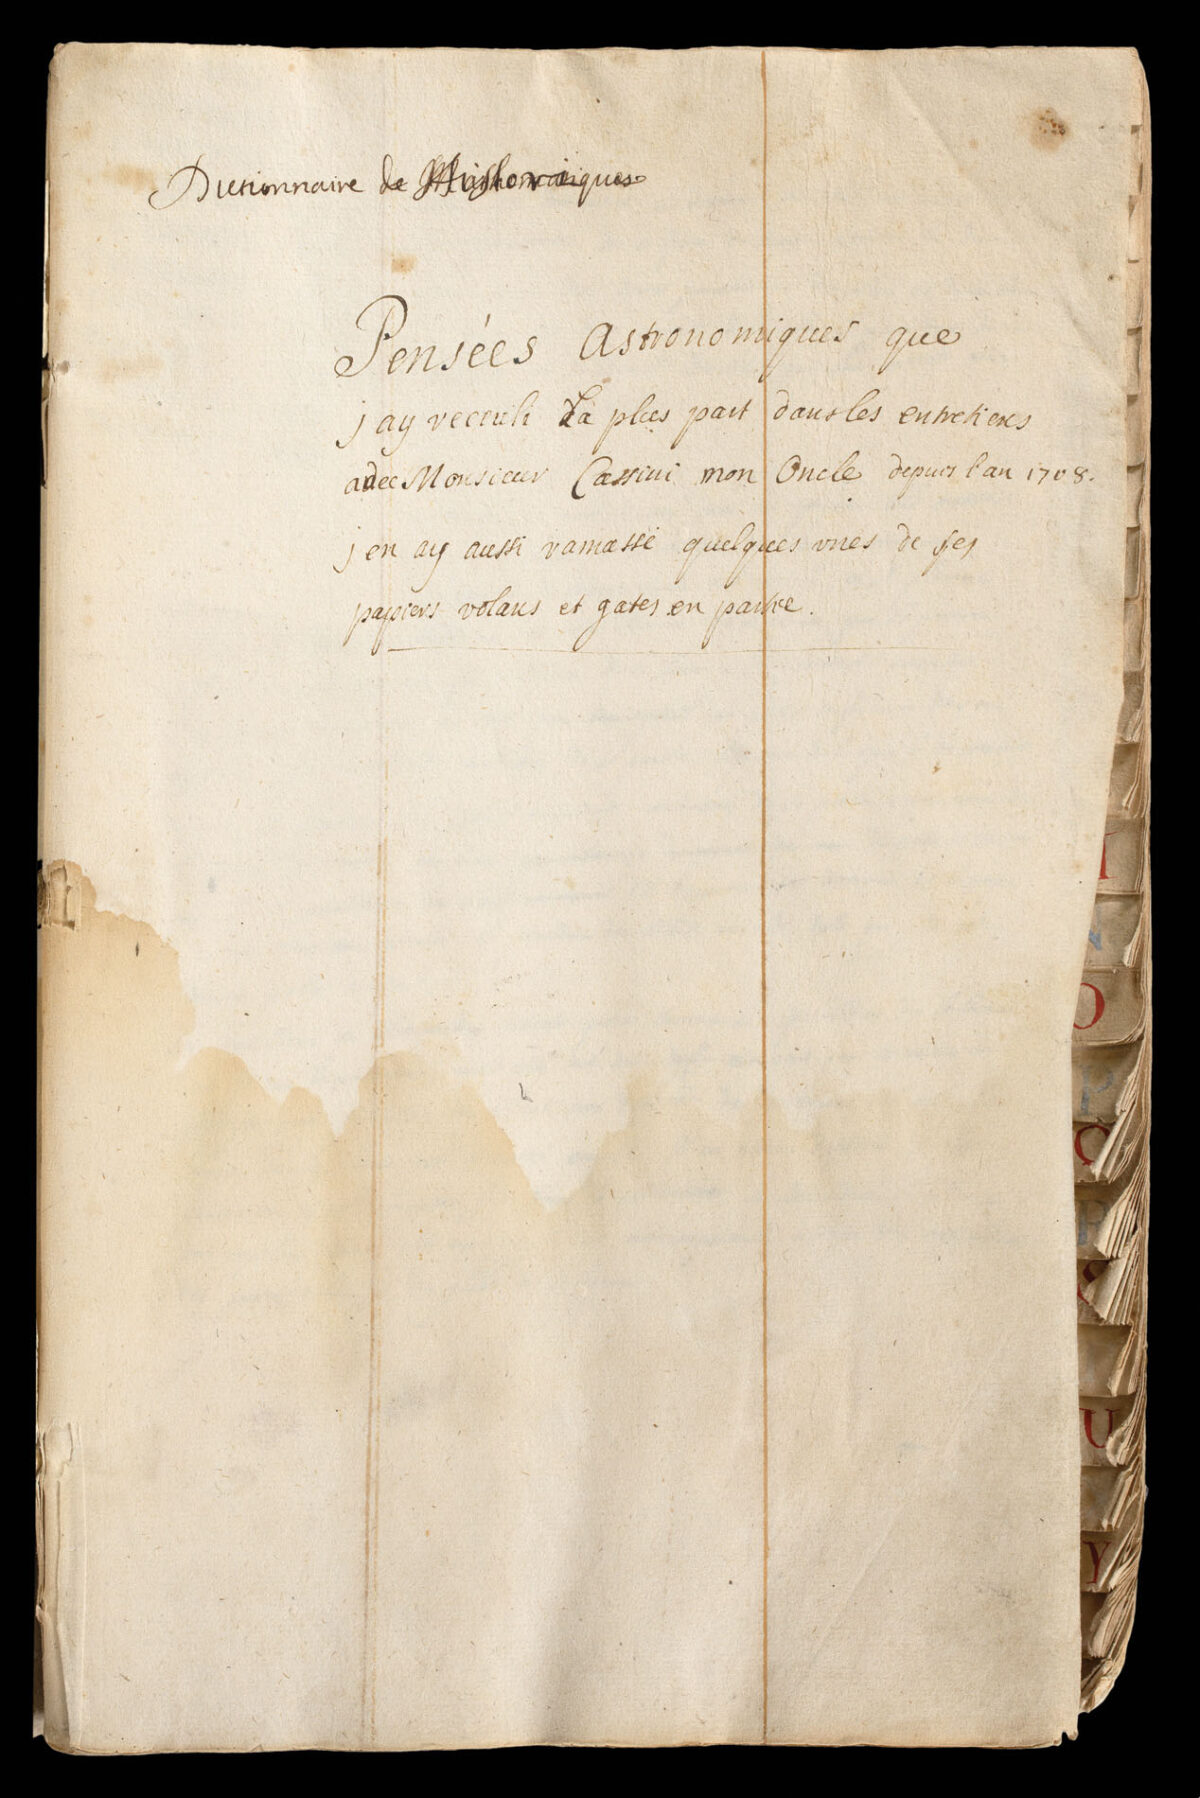 Dictionnaire de
Pensées Astronomiques que
j ay receuli La plus part dans les entretiens
avec Monsieur Cassini mon Oncle depuis l'an 1708.
j en ay aussi ramassé quelques unes de ses
papiers volans et gates en partie.
O
P
Q
R
S
U
Y